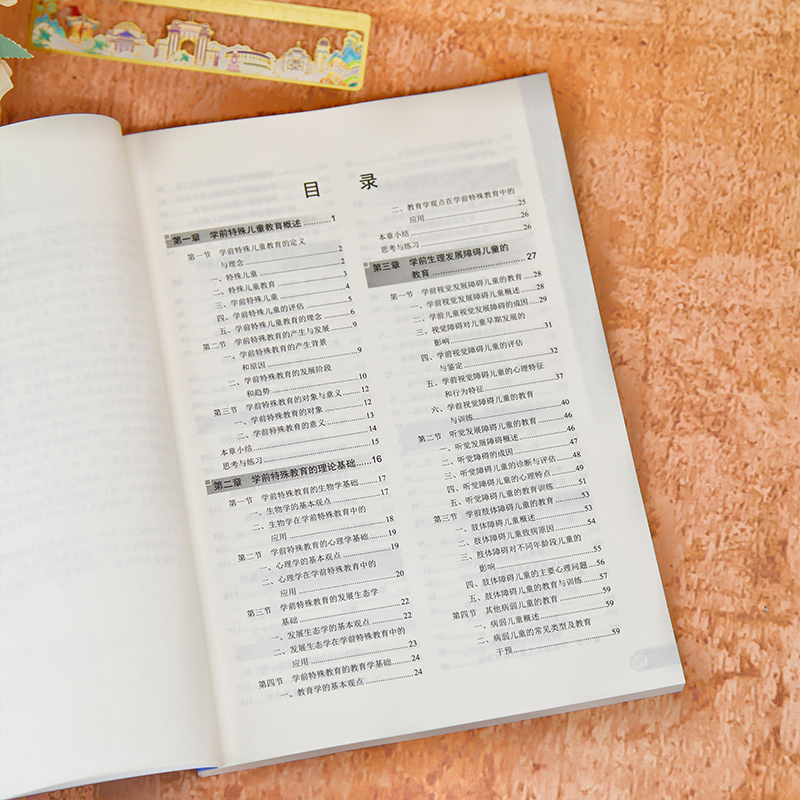 目 录
第一章 学前特殊儿童教育概述............1
第一节 学前特殊儿童教育的定义
与理念............2
一、特殊儿童............2
二、特殊儿童教育............3
三、学前特殊儿童............4
四、学前特殊儿童的评估............5
五、学前特殊儿童教育的理念............6
第二节 学前特殊教育的产生与发展............9
一、学前特殊教育的产生背景
和原因............9
二、学前特殊教育的发展阶段
和趋势............10
第三节 学前特殊教育的对象与意义............12
一、学前特殊教育的对象............12
二、学前特殊教育的意义............13
本章小结............14
思考与练习............15
第二章 学前特殊教育的理论基础............16
第一节 学前特殊教育的生物学基础............17
一、生物学的基本观点............17
二、生物学在学前特殊教育中的
应用............18
第二节 学前特殊教育的心理学基础............19
一、心理学的基本观点............19
二、心理学在学前特殊教育中的
应用............20
第三节 学前特殊教育的发展生态学
基础............22
一、发展生态学的基本观点............22
二、发展生态学在学前特殊教育中的
应用............23
第四节 学前特殊教育的教育学基础............24
一、教育学的基本观点............24
二、教育学观点在学前特殊教育中的
应用............25
本章小结............26
思考与练习............26
第三章 学前生理发展障碍儿童的
教育............27
第一节 学前视觉发展障碍儿童的教育............28
一、学前视觉发展障碍儿童概述............28
二、学前儿童视觉发展障碍的成因............29
三、视觉障碍对儿童早期发展的
影响............31
四、学前视觉障碍儿童的评估
与鉴定............32
五、学前视觉障碍儿童的心理特征
和行为特征............37
六、学前视觉障碍儿童的教育
与训练............40
第二节 听觉发展障碍儿童的教育............46
一、听觉发展障碍概述............46
二、听觉障碍的成因............47
三、听觉障碍儿童的诊断与评估............48
四、听觉障碍儿童的心理特点............49
五、听觉障碍儿童的教育训练............51
第三节 学前肢体障碍儿童的教育............53
一、肢体障碍儿童概述............53
二、肢体障碍儿童致病原因............54
三、肢体障碍对不同年龄段儿童的
影响............55
四、肢体障碍儿童的主要心理问题............56
五、肢体障碍儿童的教育与训练............57
第四节 其他病弱儿童的教育............59
一、病弱儿童概述............59
二、病弱儿童的常见类型及教育
干预............59